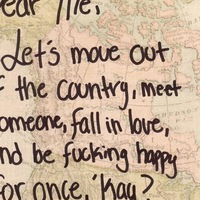 ear Me,
Let's move out
f the country, meet
omeone, fall in love,
nd be fucking happy
for once, 'Kay?